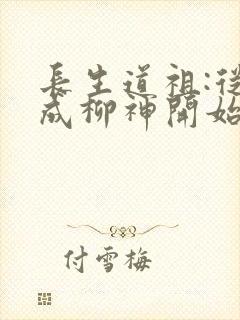 長生道祖:從
成柳神開始
付雪梅